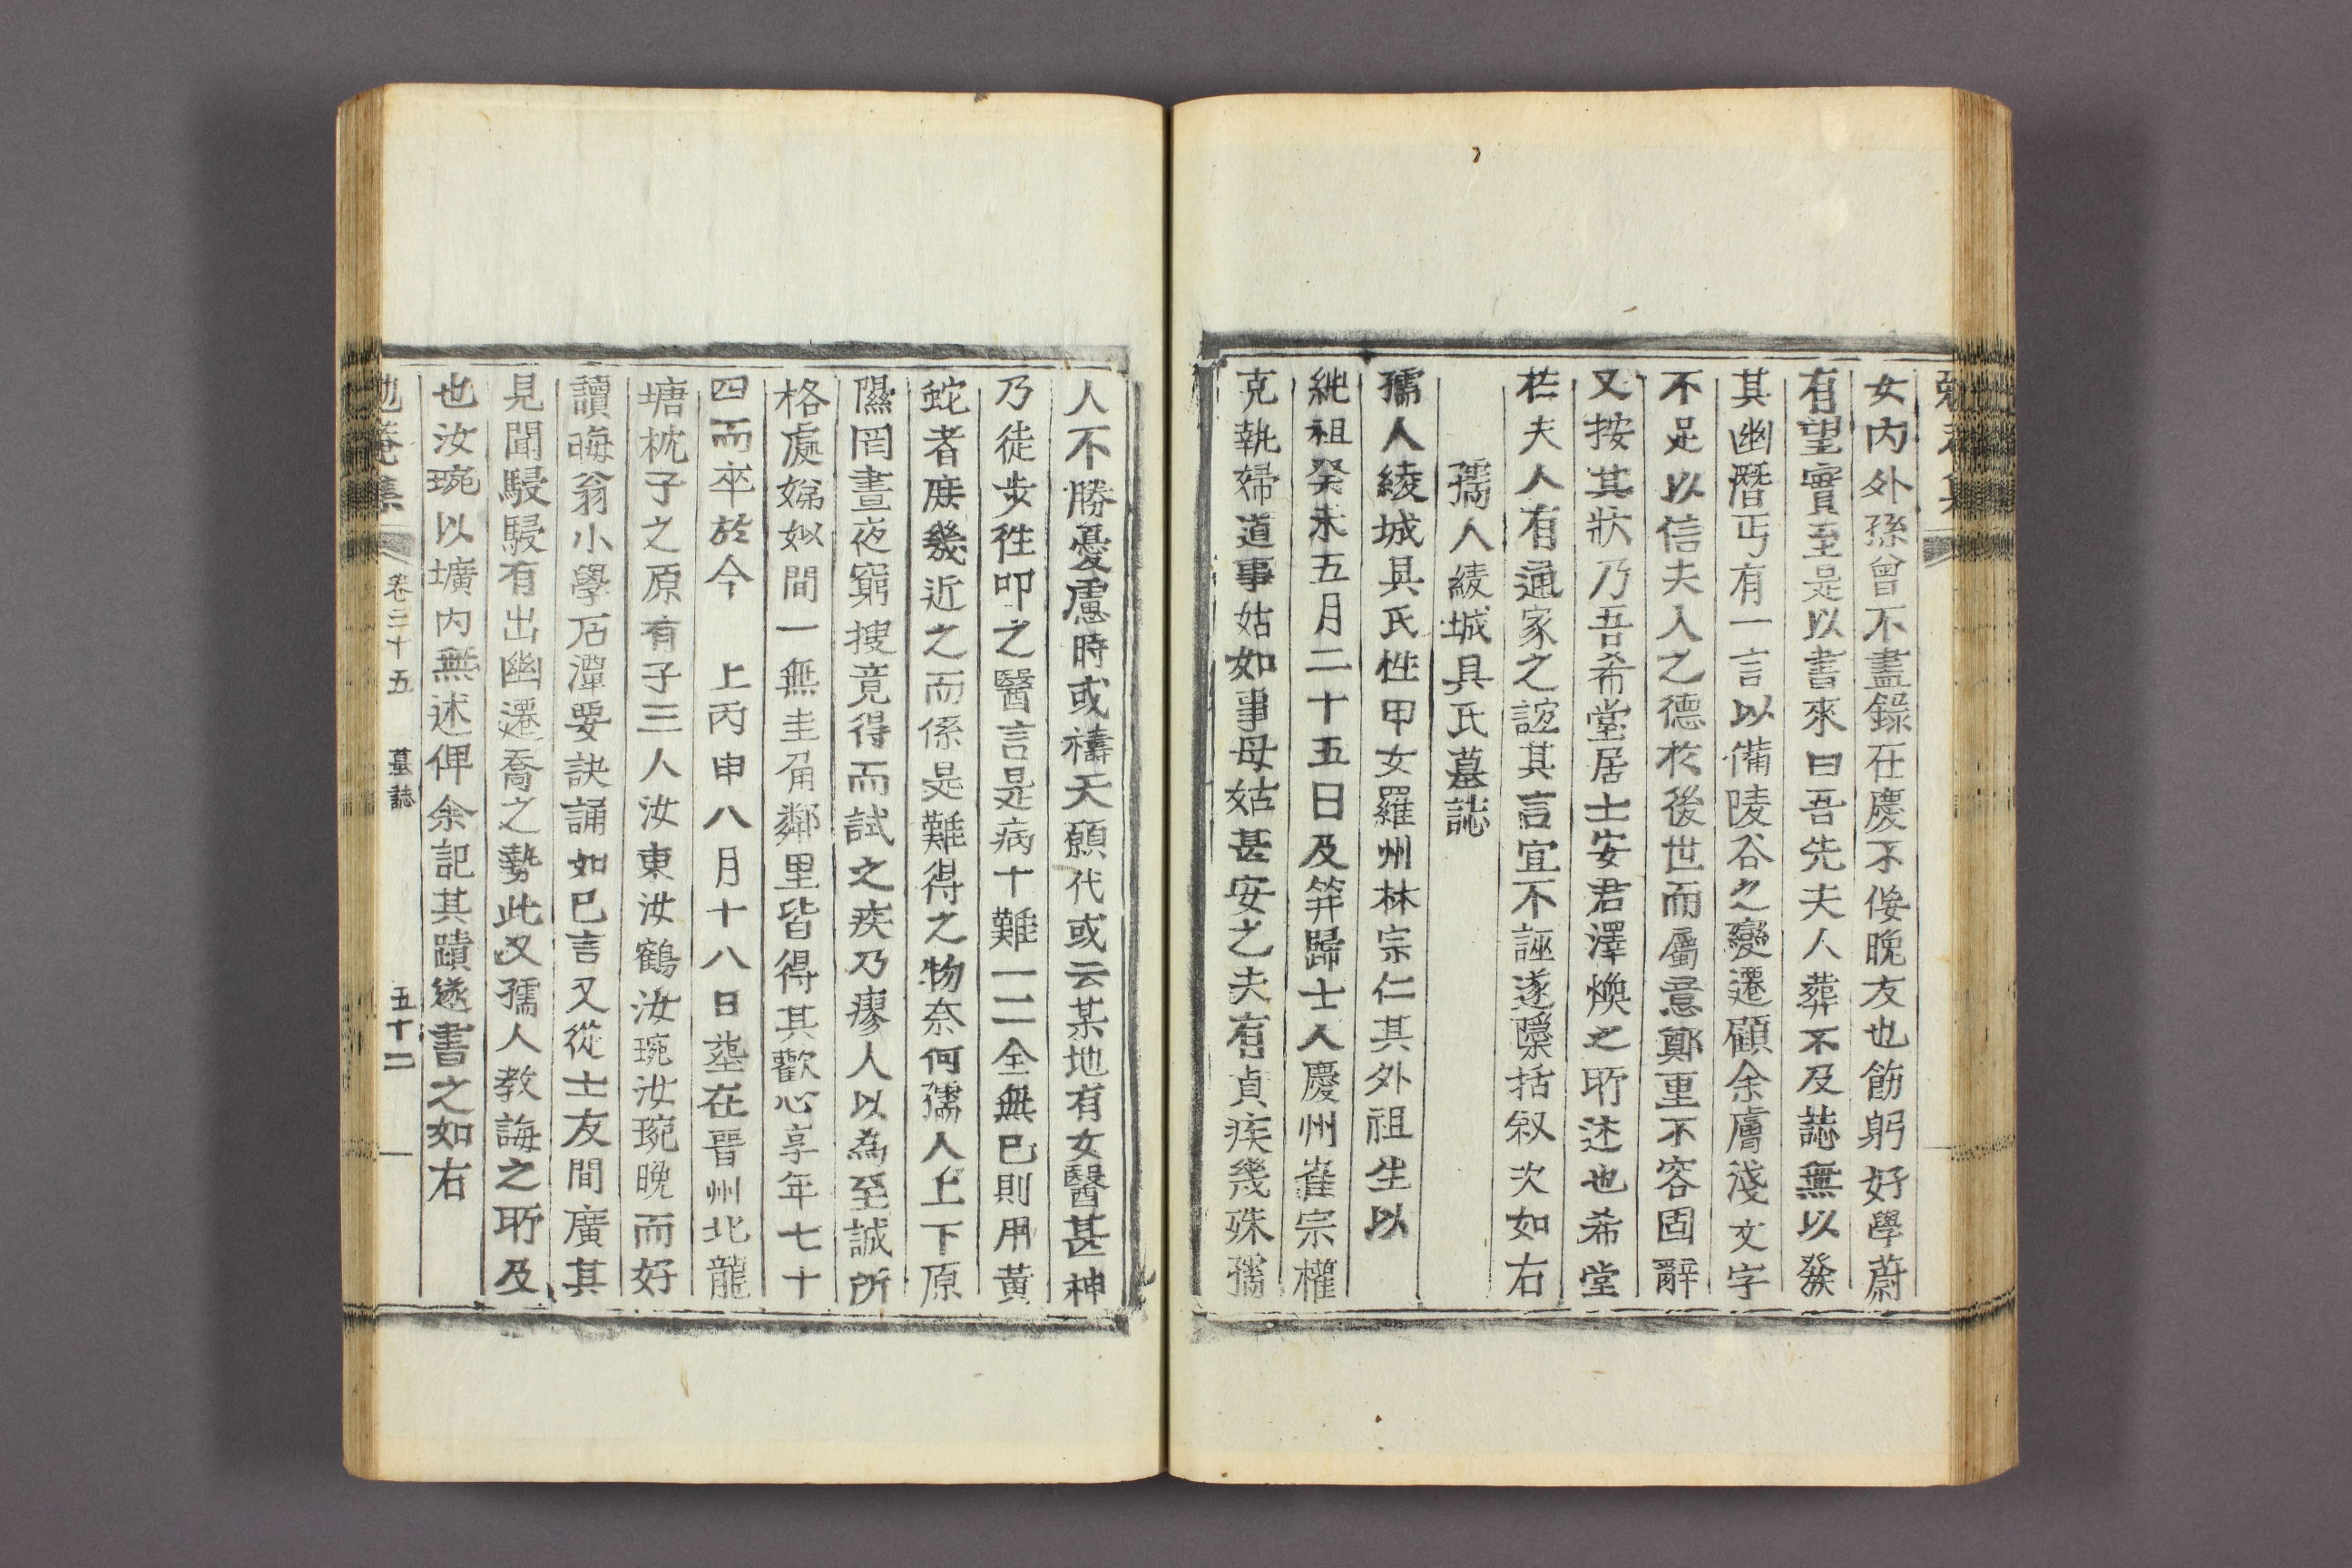 女內外孫曾不盡錄在慶不佞晚友也飭躬好學蔚
有望實至是以書來曰吾先夫人葬不及誌無以發
其幽潛丐有一言以備陵谷之變遷顧余膚淺文字
不足以信夫人之德於後世而屬意鄭重不容固辭
又按其狀乃吾希堂居士安君澤煥之所述也希堂
於夫人有通家之誼其言宜不誣遂檃括叙次如右
孺人綾城具氏墓誌
孺人綾城具氏性甲女羅州林宗仁其外祖生以
純祖癸未五月二十五日及笄歸士人慶州崔宗權
克執婦道事姑如事母姑甚安之夫有貞疾幾殊孺
人不勝憂慮時或禱天願代或云某地有女醫甚神
乃徒步徃叩之醫言是病十難一二全無已則用黃
蛇者庶幾近之而係是難得之物奈何孺人上下原
隰罔晝夜窮搜竟得而試之疾乃瘳人以為至誠所
格處娣姒間一無圭角鄰里皆得其歡心享年七十
四而卒於今 上丙申八月十八日塟在晋州北龍
塘枕子之原有子三人汝東汝鶴汝琬汝琬晚而好
讀晦翁小學石潭要訣誦如己言又從士友間廣其
見聞駸駸有出幽遷喬之勢此又孺人教誨之所及
也汝琬以壙內無述俾余記其蹟遂書之如右
卷二十五 墓誌 五十二